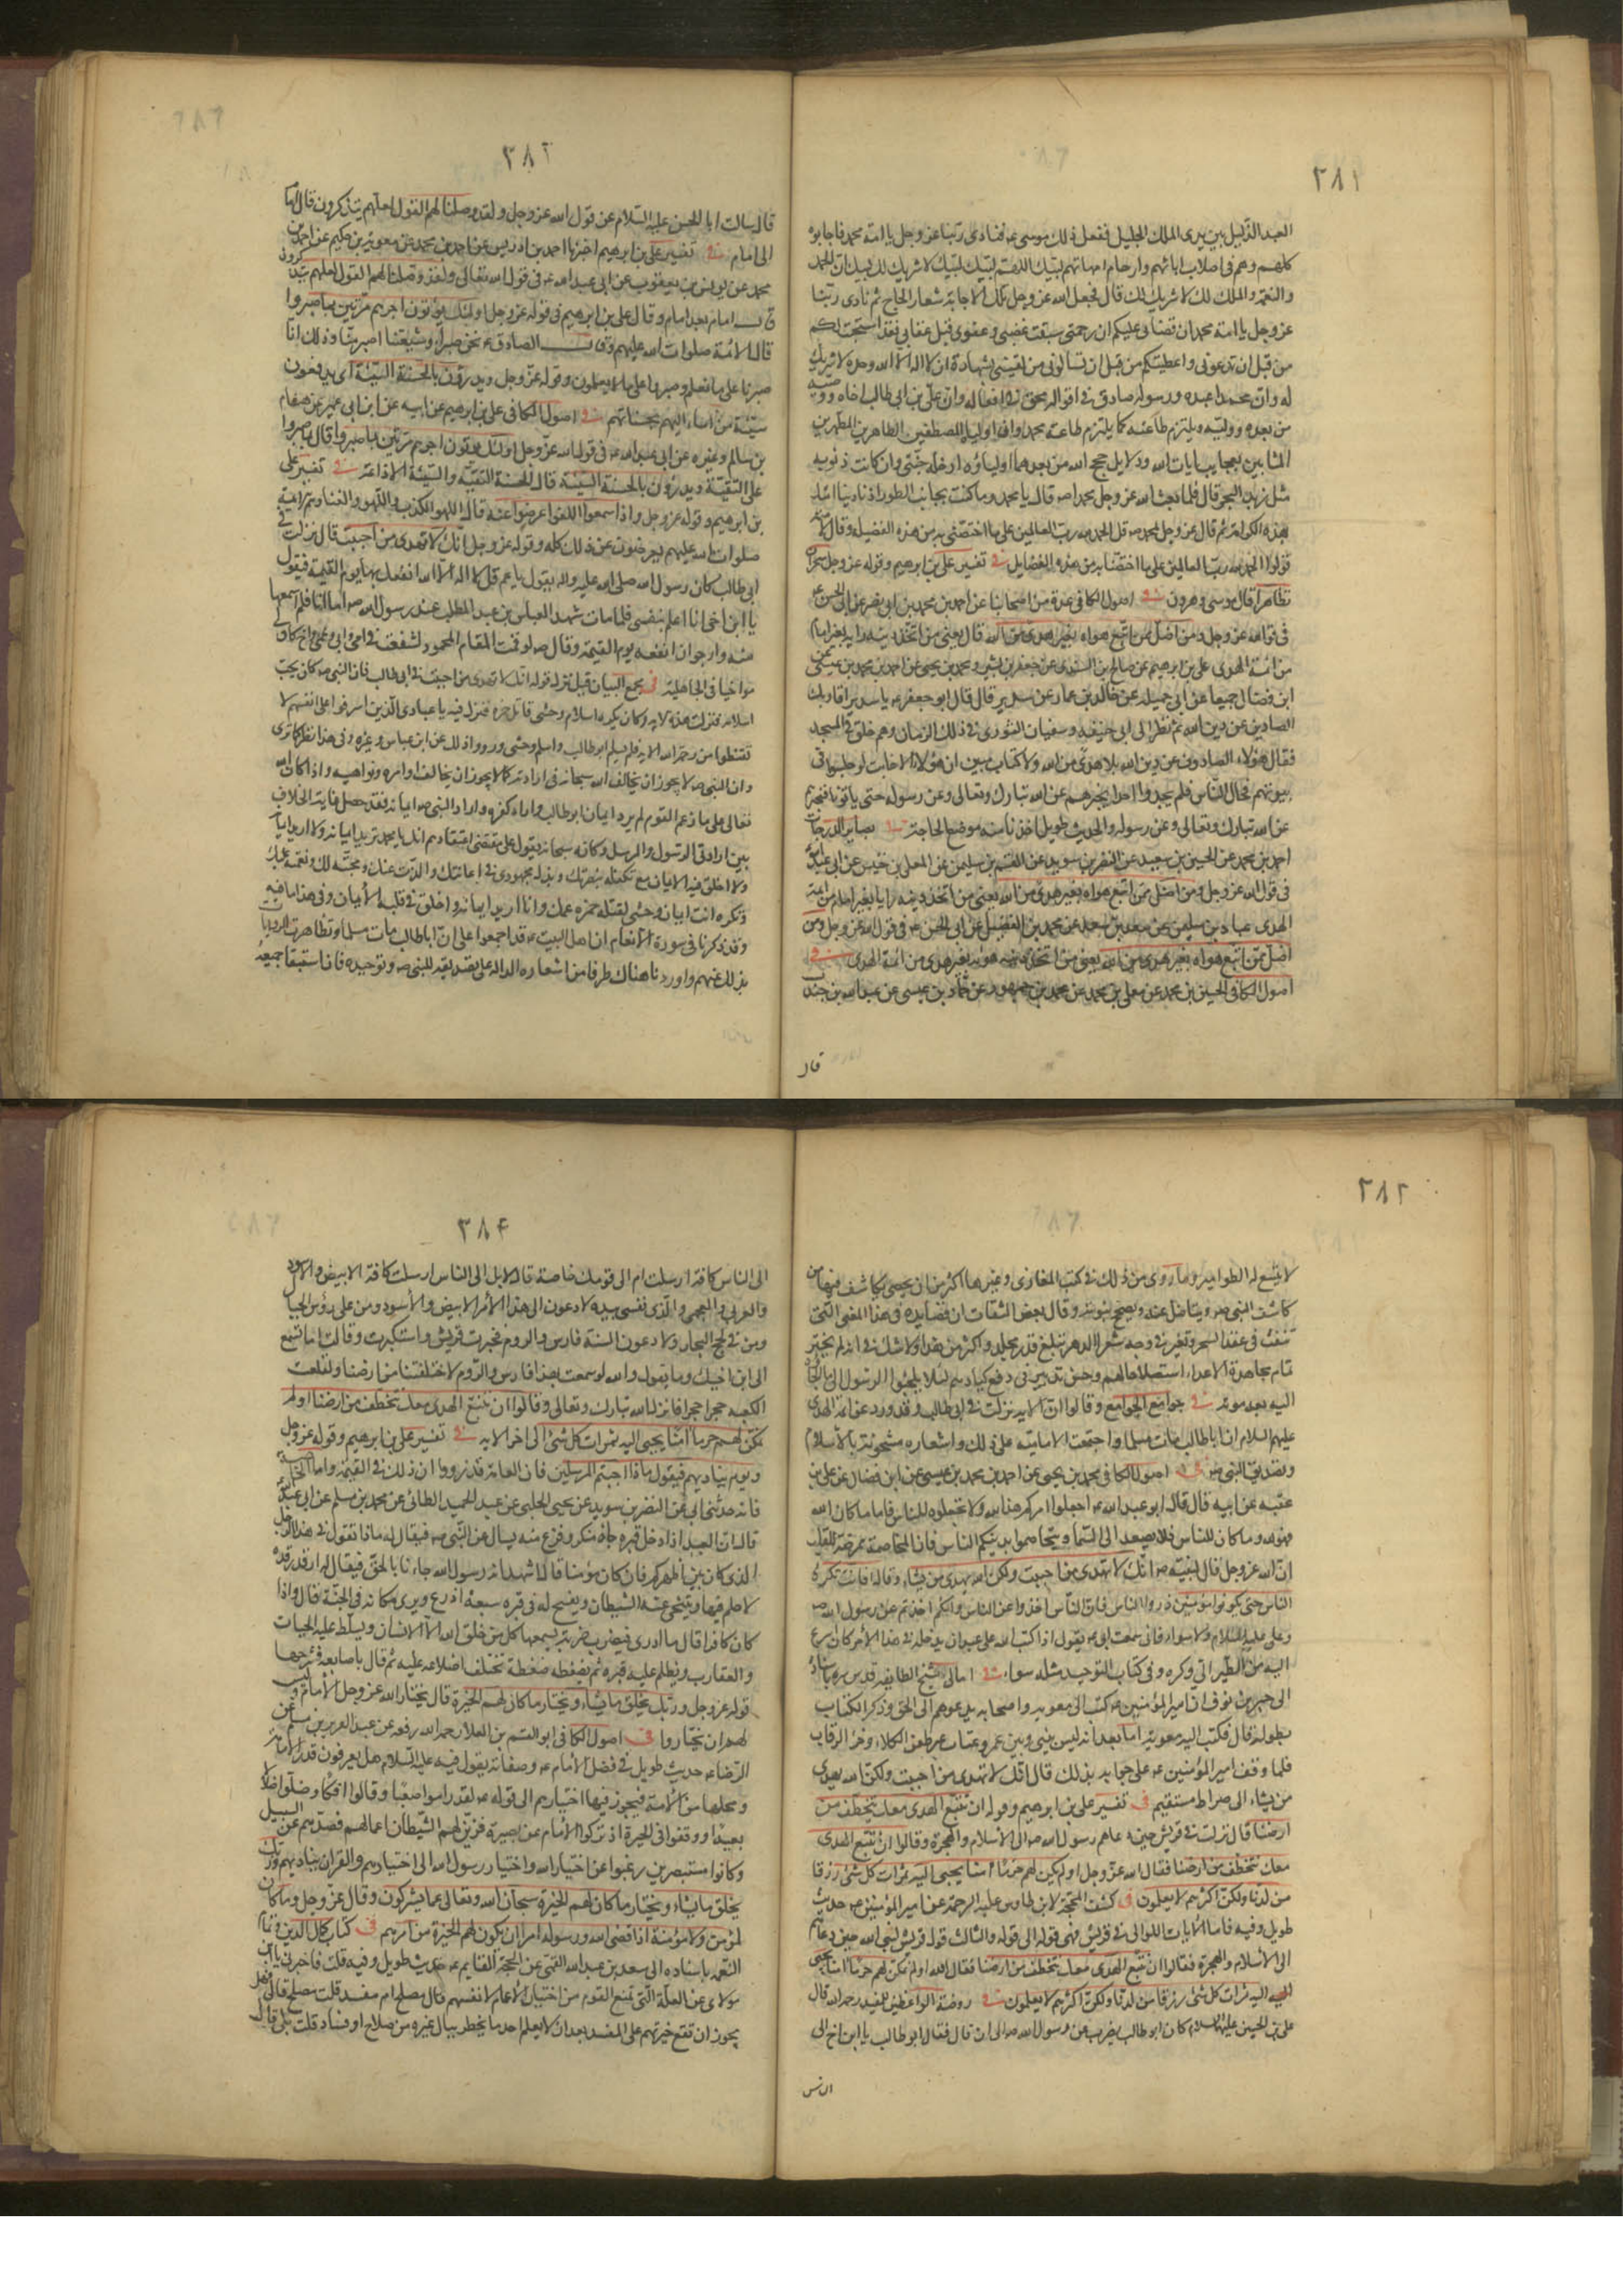 ٣٨١
العبد الذليل بين يدى الملك الجليل ففعل ذلك موسى ع فنادى ربنا عز وجل يا امة محمد فاجابوه
كلهم وهم فى اصلاب ابائهم وارحام امهاتهم لبيك اللهم لبيك لبيك لا شريك لك لبيك ان الحمد
والنعمة والملك لك لا شريك لك قال فجعل الله عز وجل تلك الاجابة شعار الحاج ثم نادى ربنا
عز وجل يا امة محمد ان قضائى عليكم ان رحمتى سبقت غضبى وعفوى قبل عقابى فقد استجبت لكم
من قبل ان تدعونى واعطيتكم من قبل ان تسالونى من لقينى بشهادة ان لا اله الا الله وحده لا شريك
له وان محمدا عبده ورسوله صادق فى اقواله محق فى افعاله وان على بن ابى طالب اخاه ووصيه
من بعده ووليه ويلتزم طاعته كما يلتزم طاعة محمد وان اولياءه المصطفين الطاهرين المطهرين
بعجايب ايات الله ودلايل حجج الله من بعدهما اولياؤه ادخله جنتى وان كانت ذنوبه
مثل زبد البحر قال فلما بعث الله عز وجل محمدا ص قال يا محمد وما كنت بجانب الطور اذ نادينا امتك
بهذه الكرامة ثم قال عز وجل لمحمد ص قل الحمد لله رب العالمين على ما اختصنى به من هذه الفضيلة وقال لامته
قولوا الحمد لله رب العالمين على ما اختصنا به من هذه الفضايل فى تفسير على بن ابرهيم وقوله عز وجل سحران
تظاهرا قال موسى وهرون فى اصول الكافى عدة من اصحابنا عن احمد بن محمد بن ابى نصر عن ابى الحسن ع
فى قول الله عز وجل ومن اضل ممن اتبع هواه بغير هدى من الله قال يعنى من اتخذ دينه رايه بغير امام
من ائمة الهدى على بن ابرهيم عن صالح بن السندى عن جعفر بن بشير ومحمد بن يحيى عن احمد بن محمد بن عيسى عن
ابن فضال جميعا عن ابى جميلة عن خالد بن عمار عن سدير قال قال ابو جعفر ع يا سدير افاريك
الصادين عن دين الله ثم نظر الى ابى حنيفة وسفيان الثورى فى ذلك الزمان وهم حلق فى المسجد
فقال هؤلاء الصادون عن دين الله بلا هدى من الله ولا كتاب مبين ان هؤلاء الاخابث لو جلسوا فى
بيوتهم فجال الناس فلم يجدوا احدا يخبرهم عن الله تبارك وتعالى وعن رسوله حتى ياتونا فنخبرهم
عن الله تبارك وتعالى وعن رسوله والحديث طويل اخذنا منه موضع الحاجة فى بصاير الدرجات
احمد بن محمد عن الحسين بن سعيد عن النضر بن سويد عن القسم بن سليمن عن المعلى بن خنيس عن ابى عبد الله ع
فى قول الله عز وجل ومن اضل ممن اتبع هواه بغير هدى من الله يعنى من اتخذ دينه رايا بغير امام من ائمة
الهدى عباد بن سليمن عن سعد بن سعد عن محمد بن الفضيل عن ابى الحسن ع فى قول الله عز وجل ومن
اضل ممن اتبع هواه بغير هدى من الله يعنى من اتخذ دينه هويه بغير هدى من ائمة الهدى فى
اصول الكافى الحسين بن محمد عن معلى بن محمد عن محمد بن جمهور عن حماد بن عيسى عن عبد الله بن جندب
قال
٣٨٢
قال سالت ابا الحسن عليه السلام عن قول الله عز وجل ولقد وصلنا لهم القول لعلهم يتذكرون قال امام
الى امام فى تفسير على بن ابرهيم اخبرنا احمد بن ادريس عن احمد بن محمد عن معوية بن حكيم عن احمد بن
محمد عن يونس بن يعقوب عن ابى عبد الله ع فى قول الله تعالى ولقد وصلنا لهم القول لعلهم يتذكرون
قال امام بعد امام وقال على بن ابرهيم فى قوله عز وجل اولئك يؤتون اجرهم مرتين بما صبروا
قال الائمة صلوات الله عليهم وقال الصادق ع نحن صبراء وشيعتنا اصبر منا وذلك انا
صبرنا على ما نعلم وصبروا على ما لا يعلمون وقوله عز وجل ويدرؤن بالحسنة السيئة اى يدفعون
سيئة من اساء اليهم بحسناتهم فى اصول الكافى على بن ابرهيم عن ابيه عن ابن ابى عمير عن هشام
بن سالم وغيره عن ابى عبد الله ع فى قول الله عز وجل اولئك يؤتون اجرهم مرتين بما صبروا قال بما صبروا
على التقية ويدرؤن بالحسنة السيئة قال الحسنة التقية والسيئة الاذاعة فى تفسير على
بن ابرهيم وقوله عز وجل واذا سمعوا اللغو اعرضوا عنه قال اللغو الكذب واللهو والغناء وهم الائمة
صلوات الله عليهم يعرضون عن ذلك كله وقوله عز وجل انك لا تهدى من احببت قال نزلت فى
ابى طالب كان رسول الله صلى الله عليه واله يقول يا عم قل لا اله الا الله انفعك بها يوم القيمة فيقول
يا ابن اخى انا اعلم بنفسى فلما مات شهد العباس بن عبد المطلب عند رسول الله ص اما انا فلم اسمعها
منه وارجو ان انفعه يوم القيمة وقال ص لو قمت المقام المحمود لشفعت فى امى وابى وعمى واخ كان لى
مواخيا فى الجاهلية فى مجمع البيان قيل نزل قوله انك لا تهدى من احببت فى ابى طالب فان النبى ص كان يحب
اسلامه فنزلت هذه الاية وكان يكره اسلام وحشى قاتل حمزه فنزل فيه يا عبادى الذين اسرفوا على انفسهم لا
تقنطوا من رحمة الله الاية فلم يسلم ابو طالب واسلم وحشى ورووا ذلك عن ابن عباس وغيره وفى هذا نظر كما ترى
وان النبى ص لا يجوز ان يخالف الله سبحانه فى ارادته كما لا يجوز ان يخالف اوامره ونواهيه واذا كان الله
تعالى على ما زعم القوم لم يرد ايمان ابو طالب واراد كفره واراد النبى ص ايمانه فقد حصل غاية الخلاف
بين ارادتى الرسول والمرسل وكانه سبحانه يقول على مقتضى اعتقادهم انك يا محمد تريد ايمانه ولا اريد ايمانه
ولا اخلق فيه الايمان مع تكفله بنصرتك وبذله مجهوده فى اعانتك والذب عنك ومحبته لك ونعمته عليك
وتكره انت ايمان وحشى لقتله حمزه عمك وانا اريد ايمانه واخلق فى قلبه الايمان وفى هذا ما فيه
وقد ذكرنا فى سورة الانعام ان اهل البيت ع قد اجمعوا على ان ابا طالب مات مسلما وتظاهرت الروايات
بذلك عنهم واوردنا هناك طرفا من اشعاره الدالة على تصديقه للنبى ص وتوحيده فان استيفاء جميعه
٣٨٣
لا يتسع له الطوامير وما روى من ذلك فى كتب المغازى وغيرها اكثر من ان يحصى يكاشف فيها من
كاشف النبى ص ويناضل عنه ويصحح نبوته وقال بعض الثقات ان قصايده فى هذا المعنى التى
تنفث فى عقد السحر وتغير فى وجه شعراء الدهر تبلغ قدر مجلد واكثر من هذا ولا شك فى انه لم يختر
تمام مجاهرة الاعداء استصلاحا لهم وحسن تدبير فى دفع كيادهم لئلا يلجئوا الرسول الى ما الجاوه
اليه بعد موته فى جوامع الجوامع وقالوا ان الاية نزلت فى ابى طالب وقد ورد عن ائمة الهدى
عليهم السلام ان ابا طالب مات مسلما واجتمعت الامامية على ذلك واشعاره مشحونة بالاسلام
وتصديق النبى ص فى اصول الكافى محمد بن يحيى عن احمد بن محمد بن عيسى عن ابن فضال عن على بن
عقبة عن ابيه قال قال ابو عبد الله ع اجعلوا امركم هذا لله ولا تجعلوه للناس فانه ما كان لله
فهو لله وما كان للناس فلا يصعد الى السماء ولا تخاصموا بدينكم الناس فان المخاصمة ممرضة للقلب
ان الله عز وجل قال لنبيه ص انك لا تهدى من احببت ولكن الله يهدى من يشاء وقال افانت تكره
الناس حتى يكونوا مؤمنين ذروا الناس فان الناس اخذوا عن الناس وانكم اخذتم عن رسول الله ص
وعلى عليه السلام ولا سواء فانى سمعت ابى ع يقول اذا كتب الله على عبد ان يدخله فى هذا الامر كان اسرع
اليه من الطير الى وكره وفى كتاب التوحيد مثله سواء فى امالى شيخ الطايفة قدس سره باسناده
الى جبر بن نوف ان امير المؤمنين ع كتب الى معوية واصحابه يدعوهم الى الحق وذكر الكتاب
بطوله قال فكتب اليه معوية اما بعد انه ليس بينى وبين عمرو عتاب غير طعن الكلا وحز الرقاب
فلما وقف امير المؤمنين ع على جوابه بذلك قال انك لا تهدى من احببت ولكن الله يهدى
من يشاء الى صراط مستقيم فى تفسير على بن ابرهيم وقوله ان نتبع الهدى معك نتخطف من
ارضنا قال نزلت فى قريش حين دعاهم رسول الله ص الى الاسلام والهجرة وقالوا ان نتبع الهدى
معك نتخطف من ارضنا فقال الله عز وجل اولم نمكن لهم حرما امنا يجبى اليه ثمرات كل شئ رزقا
من لدنا ولكن اكثرهم لا يعلمون فى كشف المحجة لابن طاوس عليه الرحمة عن امير المؤمنين ع حديث
طويل وفيه فاما الايات اللواتى فى قريش فهى قوله الى قوله والثالث قول قريش لنبى الله حين دعاهم
الى الاسلام والهجرة فقالوا ان نتبع الهدى معك نتخطف من ارضنا فقال الله اولم نمكن لهم حرما امنا يجبى
اليه ثمرات كل شئ رزقا من لدنا ولكن اكثرهم لا يعلمون فى روضة الواعظين للمفيد رحمه الله قال
على بن الحسين عليهما السلام كان ابو طالب يضرب عن رسول الله ص الى ان قال فقال ابو طالب يا ابن اخ الى
الناس
٣٨۴
الى الناس كافة ارسلت ام الى قومك خاصة قال لا بل الى الناس ارسلت كافة الابيض والاسود
والعربى والعجمى والذى نفسى بيده لادعون الى هذا الامر الابيض والاسود ومن على رؤس الجبال
ومن فى لجج البحار ولادعون السنة فارس والروم فتحيرت قريش واستكبرت وقالت اما تسمع
الى ابن اخيك وما يقول والله لو سمعت بهذا فارس والروم لاختطفتنا من ارضنا ولقلعت
الكعبة حجرا حجرا فانزل الله تبارك وتعالى وقالوا ان نتبع الهدى معك نتخطف من ارضنا اولم
نمكن لهم حرما امنا يجبى اليه ثمرات كل شئ الى اخر الاية فى تفسير على بن ابرهيم وقوله عز وجل
ويوم يناديهم فيقول ماذا اجبتم المرسلين فان العامة قد رووا ان ذلك فى القيمة واما الخاصة
فانه حدثنى ابى عن النضر بن سويد عن يحيى الحلبى عن عبد الحميد الطائى عن محمد بن مسلم عن ابى عبد الله ع
قال ان العبد اذا دخل قبره جاءه منكر وفزع منه يسال عن النبى ص فيقال له ماذا تقول فى هذا الرجل
الذى كان بين اظهركم فان كان مؤمنا قال اشهد انه رسول الله جاءنا بالحق فيقال له ارقد رقدة
لا حلم فيها ويتنحى عنه الشيطان ويفسح له فى قبره سبعة اذرع ويرى مكانه فى الجنة قال واذا
كان كافرا قال ما ادرى فيضرب ضربة يسمعها كل من خلق الله الا الانسان ويسلط عليه الحيات
والعقارب ويظلم عليه قبره ثم يضغطه ضغطة تختلف اضلاعه عليه ثم قال باصابعه فشرجها
قوله عز وجل وربك يخلق ما يشاء ويختار ما كان لهم الخيرة قال يختار الله عز وجل الامام وليس
لهم ان يختاروا فى اصول الكافى ابو القسم بن العلاء رحمه الله رفعه عن عبد العزيز بن مسلم عن
الرضا ع حديث طويل فى فضل الامام ع وصفاته يقول فيه عليه السلام هل يعرفون قدر الامامة
ومحلها من الامة فيجوز فيها اختيارهم الى قوله ع لقد راموا صعبا وقالوا افكا وضلوا ضلالا
بعيدا ووقعوا فى الحيرة اذ تركوا الامام عن بصيرة فزين لهم الشيطان اعمالهم فصدهم عن السبيل
وكانوا مستبصرين رغبوا عن اختيار الله واختيار رسول الله الى اختيارهم والقران يناديهم وربك
يخلق ما يشاء ويختار ما كان لهم الخيرة سبحان الله وتعالى عما يشركون وقال عز وجل وما كان
لمؤمن ولا مؤمنة اذا قضى الله ورسوله امرا ان يكون لهم الخيرة من امرهم فى كتاب كمال الدين وتمام
النعمة باسناده الى سعد بن عبد الله القمى عن الحجة القايم ع حديث طويل وفيه قلت فاخبرنى يا ابن
مولاى عن العلة التى تمنع القوم من اختيار الامام لانفسهم قال مصلح ام مفسد قلت مصلح قال فهل
يجوز ان تقع خيرتهم على المفسد بعد ان لا يعلم احد ما يخطر ببال غيره من صلاح او فساد قلت بلى قال